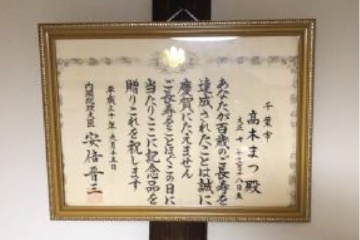 千葉市
高木まつ殿
大正七年
あなたが百歳のご長寿を
達成されたことは誠に
慶賀にたえません
ご長寿をことほぐこの日に
当たりここに記念品を
贈りこれを祝します
平成三十年九月十五日
内閣総理大臣 安倍晋三